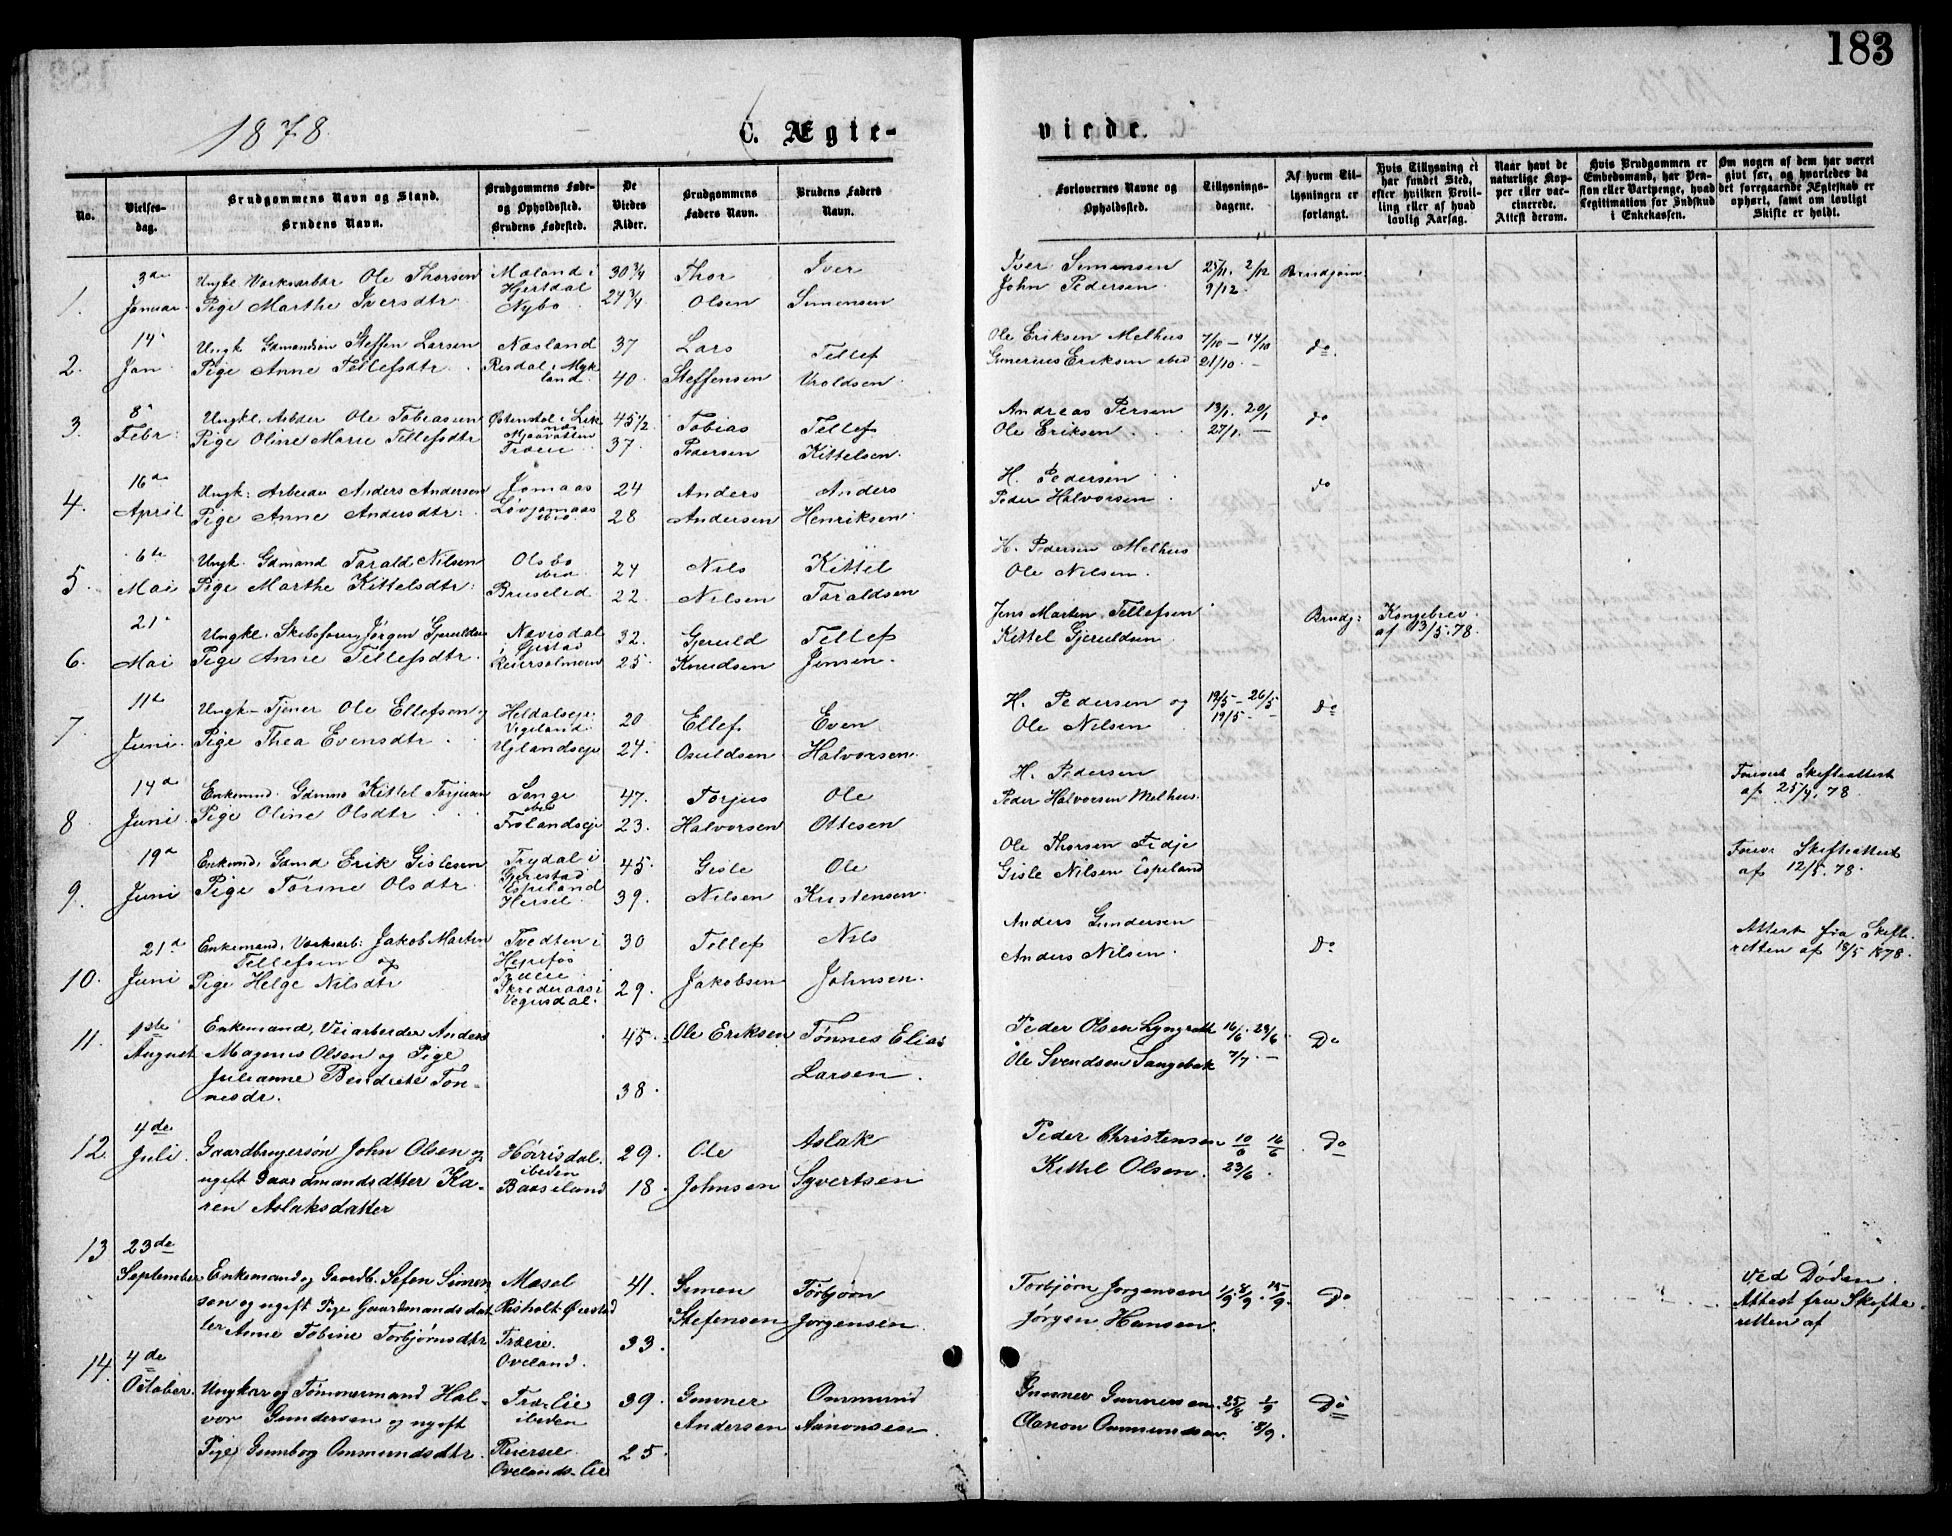 183
1878.
C. Ægte-
viede.
No.
Vielses-
dag.
Brudgommens Navn og Stand.
Brudens Navn.
Brudgommens Føde-
og Opholdssted.
Brudens Fødested.
De
Viedes
Alder.
Brudgommens
Faders Navn.
Brudens Faders
Navn.
Forlovernes Navne og
Opholdssted.
Tillysnings-
dagene.
Af hvem Til-
lysningen er
forlangt.
Hvis Tillysning ei
har fundet Sted,
efter hvilken Bevil-
ling eller af hvad
lovlig Aarsag.
Naar havt de
naturlige Kop-
per eller vac-
cinerede.
Attest derom.
Hvis Brudgommen er
Embedsmand, har Pen-
sion eller Vartpenge, hvad
Legitimation for Indskud
i Enkekassen.
Om nogen af dem har været
givt før, og hvorledes da
det foregaaende Ægteskab er
ophørt, samt om lovligt
Skifte er holdt.
1.
3de
Januar
Ungk. Værksarbdr Ole Thorsen
Pige Marthe Iversdtr
Møland i
Hjertdal
Nybo
30 3/4
27 3/4
Thor
Olsen
Iver
Simonsen
Iver Simonsen
John Pedersen
25/11. 2/12
9/12.
Brudgom
2.
14
Jan
Ungk Gdmandsøn Steffen Larsen
Pige Anne Tellefsdtr
Næsland
Risdal i Myk
land
37
40.
Lars
Steffensen
Tellef
Uroldsen
Ole Eriksen Melhus
Gunerius Eriksen ibid
7/10 — 14/10
21/10. —
do
3.
8
Febr.
Ungk. Arbdr Ole Tobiassen
Pige Oline Marie Tellefsdtr
Froeie
45 1/2
37.
Tobias
Pedersen
Tellef
Kittelsen.
Andreas Persen
Ole Eriksen
13/1. 20/1
27/1. —
do
4.
16de
April
Ungk: Arbeider Anders Andersen
Pige Anne Andersdtr.
Jomaas
Løvjomaas
ibid.
24
28
Anders
Andersen
Anders
Henriksen
H. Pedersen
Peder Halvorsen
do
5.
6te
Mai
Ungk. Gdmand Tarald Nilsen
Pige Marthe Kittelsdtr.
Olsbo
ibid
Bruseled
24
22.
Nils
Nilsen
Kittil
Taraldsen
H. Pedersen Melhus
Ole Nilsen.
6.
21
Mai
Ungke. Skibsfører Jørgen Gjeruldsen
Pige Anne Tellefsdtr.
Nævisdal
i Gjestad
32.
25.
Gjeruld
Knudsen
Tellef
Jensen.
Jens Martin Tellefsen
Kittel Gjeruldsen.
Brudg:
Kongebrev
af 13/5. 78.
7.
11te
Juni.
Ungk. Tjener Ole Ellefsen og
Pige Thea Evensdtr
Heldalseje
Vegeland
Uglandseje
20
24.
Ellef
Osuldsen
Even
Halvorsen.
H. Pedersen og
Ole Nilsen
19/5 — 26/5
19/5. —
Do
8.
14de
Juni
Enkemd. Gdmns Kittel Torjusen
Pige Oline Olsdtr
Songe
ibid
Frolandseje
47.
23.
Torjus
Halvorsen
Ole
Ottesen
H. Pedersen
Peder Halvorsen Melhus.
Forevist Skifteattest
af 25/4. 78.
9.
19de
Juni
Enkemd. Gdmd Erik Gislesen
Pige Torine Olsdtr
Trydal i
Gjerestad
Espeland
Hersel.
45.
39.
Gisle
Nilsen
Ole
Kristensen
Ole Thorsen Fidje
Gisle Nilsen Espeland
Forev: Skifteattest
af 12/5. 78.
10.
21de
Juni
Enkemand, Værksarb: Jakob Martin
Tellefsen og
Pige Helge Nilsdtr
Tvedten i
Herefos
Froeie
Skrederaas i
Vegusdal.
30
29.
Tellef
Jakobsen
Nils
Johnsen.
Anders Gundersen
Anders Nilsen
Do
Attest fra Skifte-
retten af 18/5 1878.
11.
1ste
August
Enkemand, Veiarbeider Anders
Magenus Olsen og Pige
Julianne Bendicte Tøn-
nesdr.
45.
38.
Ole Eriksen
Tønnes Elias
Larsen
Peder Olsen Lyngroth
Ole Svendsen Langebak
16/6. 23/6.
7/7. —
Do
12.
4de
Juli.
Gaardbrugersøn John Olsen og
ugift Gaardmandsdatter Ka-
ren Aslaksdatter
Hørrisdal.
ibeden
Baaseland
29.
18.
Ole
Johnsen
Aslak
Syvertsen
Peder Christensen
Kittil Olsen.
10/6 16/6
23/6.
Do
13
23de
September
Enkemand og Gaardb. Stefen Simen-
sen og ugift Pige Gaardmandsdat-
ter Anne Tobine Torbjørnsdtr
Mosol
Risholt Øiestad
Froeie.
Oveland.
41.
33.
Simen
Stefensen
Torbjørn
Jørgensen.
Torbjørn Jorgensen
Jørgen Hansen.
1/9. 8/9. 15/9.
Do
Ved Døden.
Attest fra Skifte-
retten af
14.
4de
October.
Ungkar og Tømmermand Hal-
vor Gundersen og ugift
Pige Gunborg Ommundsdtr.
ibeden
Reiersie.
Ovelands-Eie
39.
25.
Gunner
Andersen
Ommund
Aanonsen
Gunner Gunnersen.
Aanon Ommundsen.
25/8 1/9
8/9.
Do